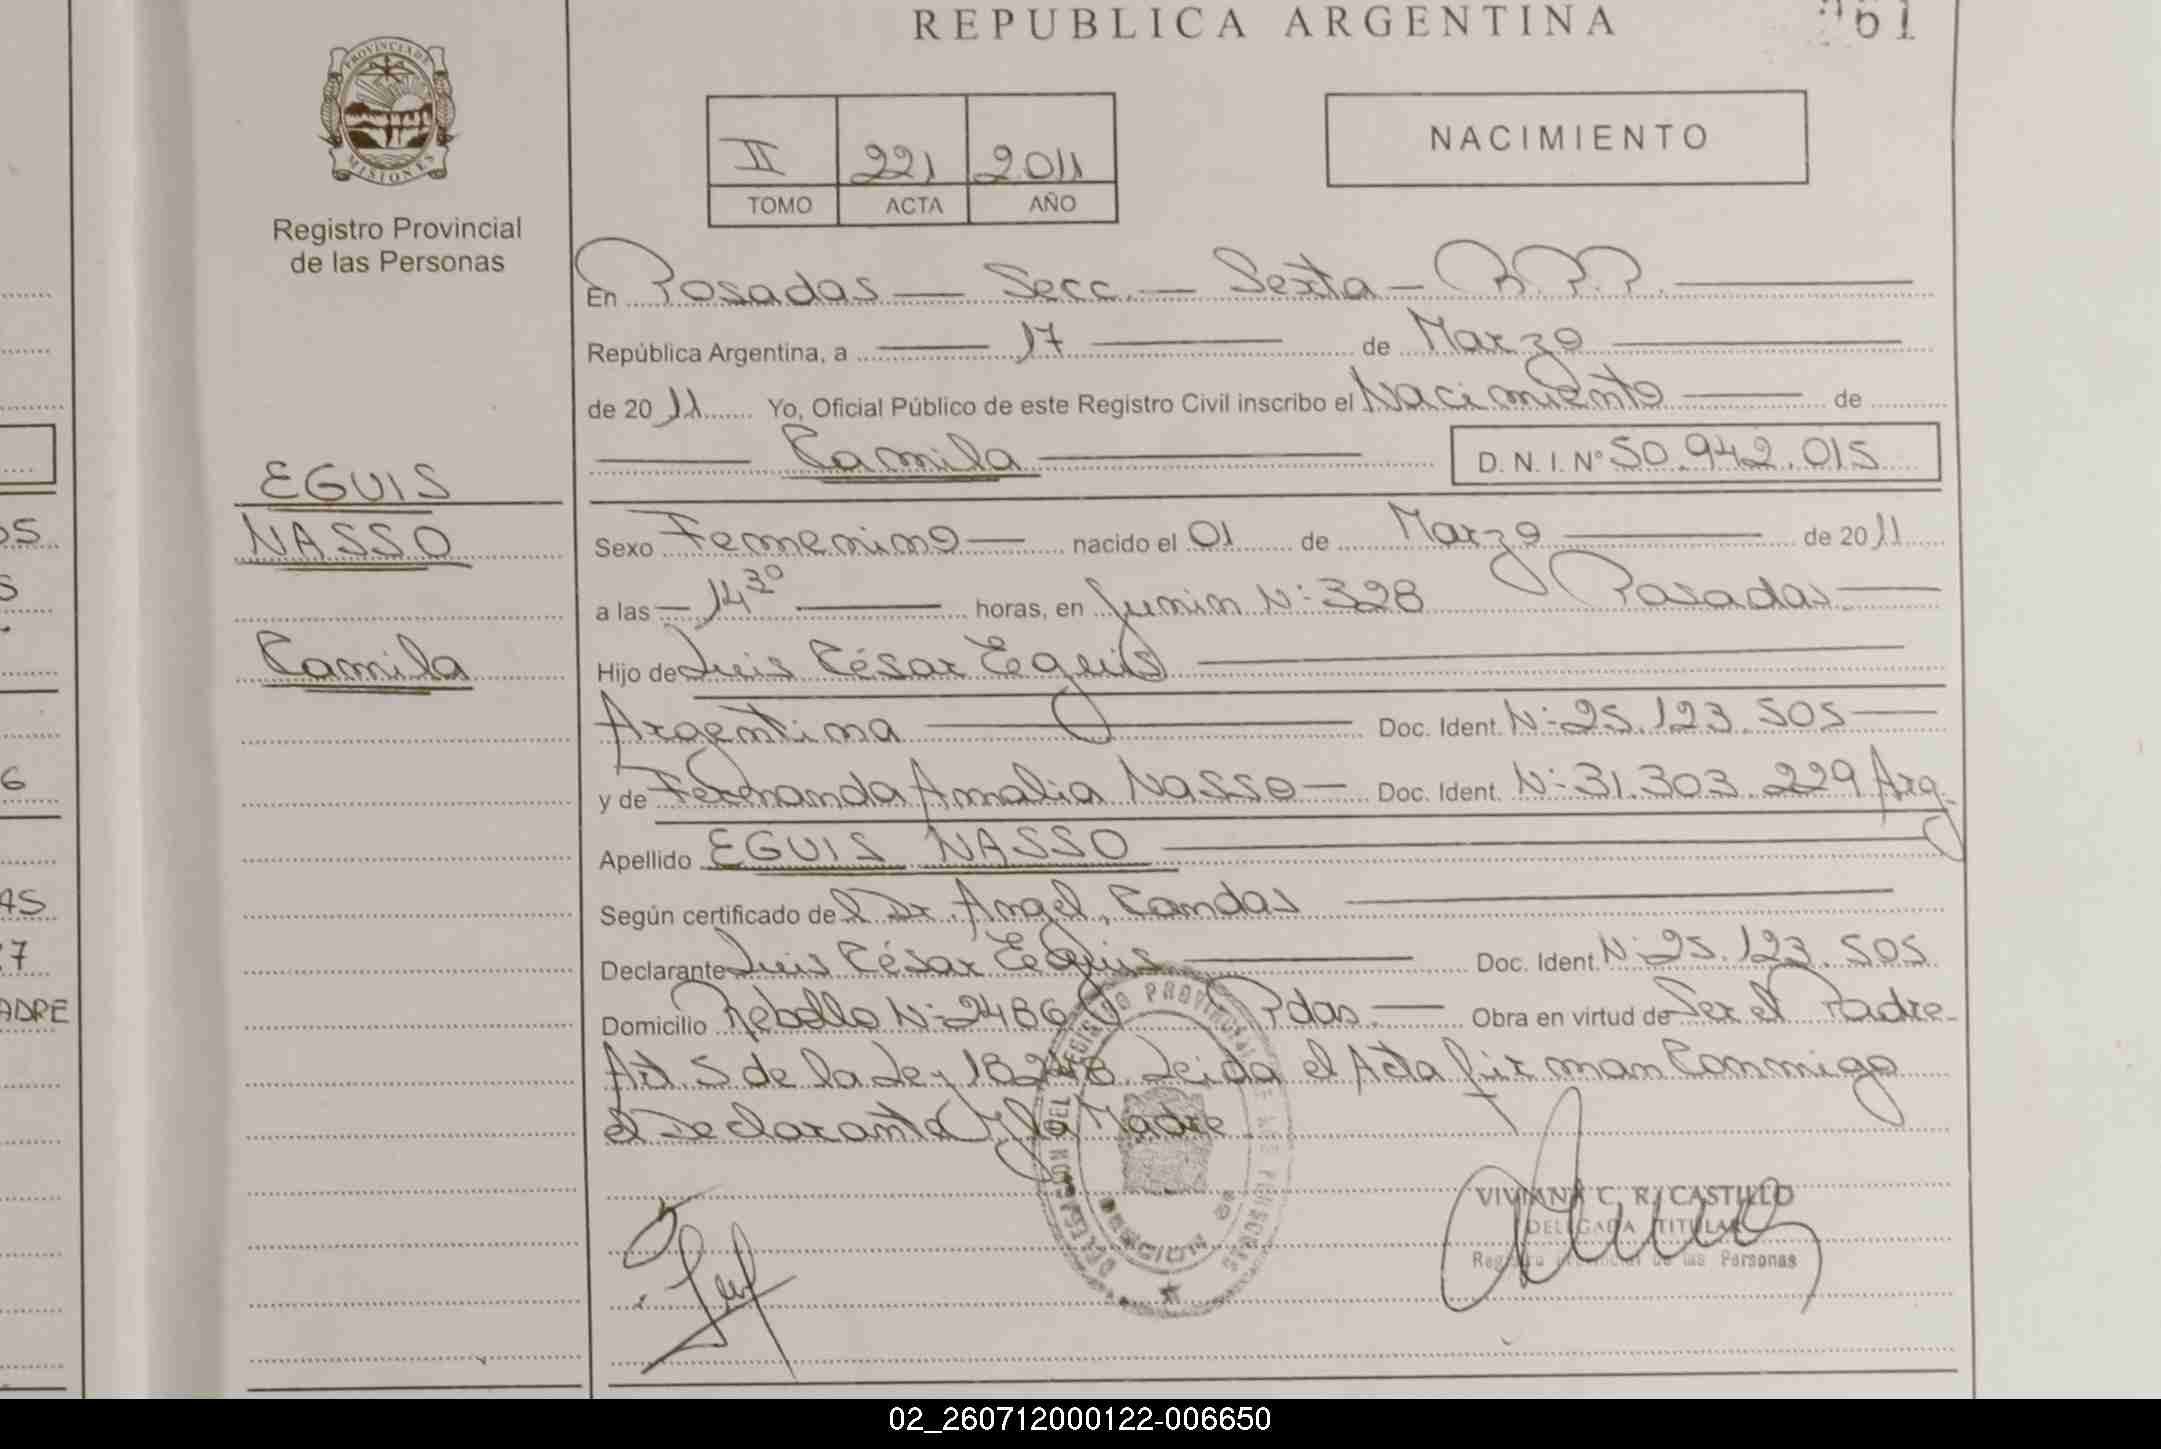 REPUBLICA ARGENTINA
61
PROVINCIA DE
MISIONES
Registro Provincial
de las Personas
II 221 2011
TOMO ACTA AÑO
NACIMIENTO
En Posadas — Secc. — Sexta — R.P.P.
República Argentina, a — 17 — de Marzo
de 2011 Yo, Oficial Público de este Registro Civil inscribo el Nacimiento — de
— Camila — D.N.I. Nº 50.942.015
EGUIS
NASSO
Camila
Sexo Femenino — nacido el 01 de Marzo — de 2011
a las — 14 30 — horas, en Junin Nº 328 Posadas —
Hijo de Luis César Eguis
Argentina — Doc. Ident. Nº 25.123.505 —
y de Fernanda Amalia Nasso — Doc. Ident. Nº 31.303.229 Arg.
Apellido EGUIS NASSO
Según certificado del Dr Angel, Candas
Declarante Luis César Eguis — Doc. Ident. Nº 25.123.505
Domicilio Rebollo Nº 2486 Pdas. — Obra en virtud de Ser el Padre-
Art 5 de la Ley 18248. Leida el Acta firman Conmigo
el Declarante y la Madre
VIVIANA C. R. CASTILLO
DELEGADA TITULAR
Registro Provincial de las Personas
05
S
6
AS
7
ADRE
02_260712000122-006650